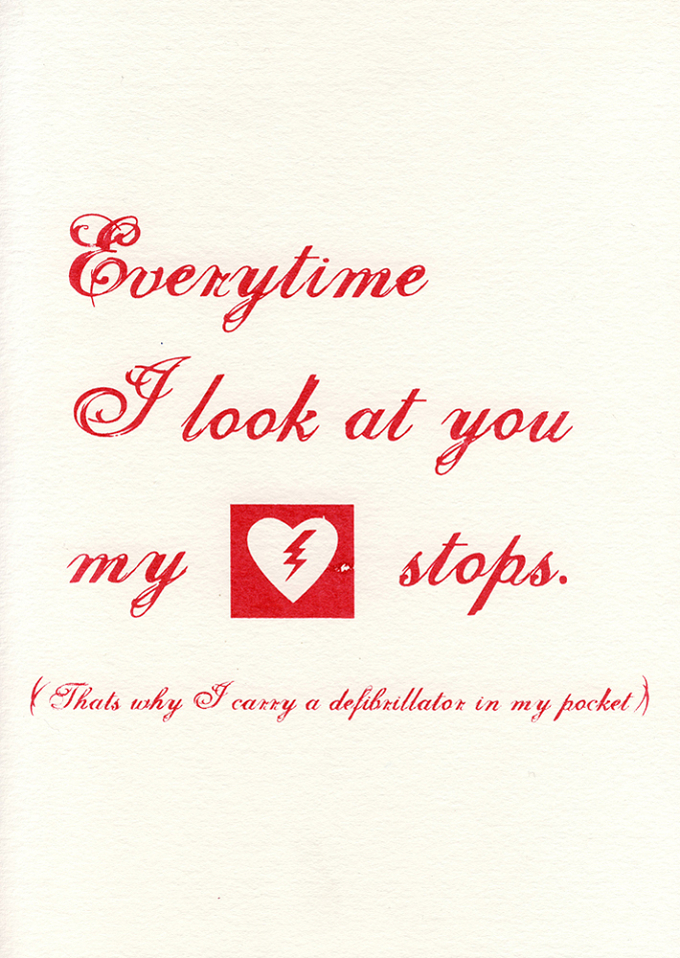 Everytime
I look at you
my stops.
(Thats why I carry a defibrillator in my pocket)